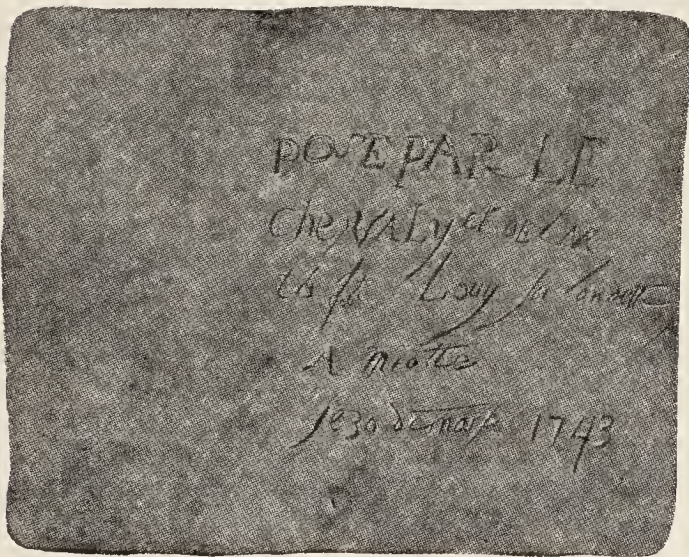 POSE PAR LE
CheVALyet DE
Louy la Londette
A miotte
le 30 de mars 1743